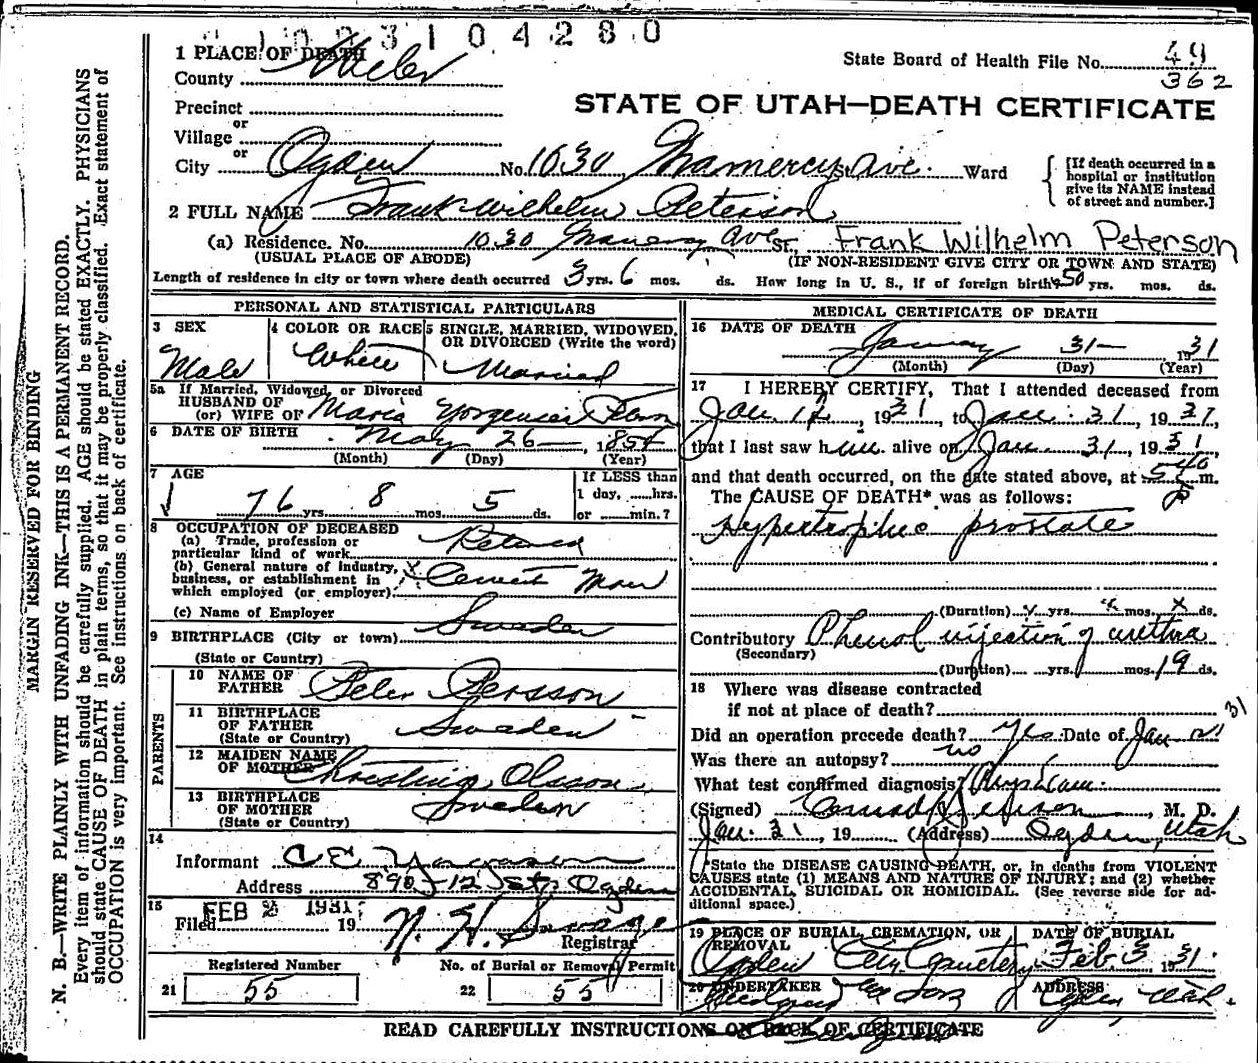 1 0 2 3 1 0 4 2 8 0
1 PLACE OF DEATH
County Weber
State Board of Health File No. 49
362
Precinct
or
Village
or
STATE OF UTAH—DEATH CERTIFICATE
City Ogden No. 1030 Gramercy Ave. Ward
[If death occurred in a
hospital or institution
give its NAME instead
of street and number.]
2 FULL NAME Frank Wilhelm Peterson
(a) Residence. No. 1030 Gramercy Ave St. Frank Wilhelm Peterson
(USUAL PLACE OF ABODE) (IF NON-RESIDENT GIVE CITY OR TOWN AND STATE)
Length of residence in city or town where death occurred 3 yrs. 6 mos. ds. How long in U. S., if of foreign birth? 50 yrs. mos. ds.
PERSONAL AND STATISTICAL PARTICULARS
3 SEX
Male
4 COLOR OR RACE
White
5 SINGLE, MARRIED, WIDOWED,
OR DIVORCED (Write the word)
Married
5a If Married, Widowed, or Divorced
HUSBAND OF
(or) WIFE OF Maria
6 DATE OF BIRTH May 26— , 1854
(Month) (Day) (Year)
7 AGE
76 yrs. 8 mos. 5 ds.
If LESS than
1 day, ......hrs.
or ......min.?
8 OCCUPATION OF DECEASED
(a) Trade, profession or
particular kind of work Retired
(b) General nature of industry,
business, or establishment in
which employed (or employer) Cement Man
(c) Name of Employer
9 BIRTHPLACE (City or town) Sweden
(State or Country)
PARENTS
10 NAME OF
FATHER Peter Persson
11 BIRTHPLACE
OF FATHER Sweden
(State or Country)
12 MAIDEN NAME
OF MOTHER Christina Olsson
13 BIRTHPLACE
OF MOTHER Sweden
(State or Country)
14
Informant C E
Address 890-12 St Ogden
15 FEB 2 1931
Filed 19 N. H. Savage
Registrar
Registered Number
21 55
No. of Burial or Removal Permit
22 55
MEDICAL CERTIFICATE OF DEATH
16 DATE OF DEATH
January 31— 1931
(Month) (Day) (Year)
17 I HEREBY CERTIFY, That I attended deceased from
Jan. 12, 1931, to Jan. 31, 1931,
that I last saw him alive on Jan. 31, 1931,
and that death occurred, on the date stated above, at 540 P m.
The CAUSE OF DEATH* was as follows:
Hypertrophic prostate
(Duration) yrs. mos. x ds.
Contributory Phenol injection of urethra
(Secondary)
(Duration) yrs. mos. 19 ds.
18 Where was disease contracted
if not at place of death?
Did an operation precede death? Yes Date of Jan 12 31
Was there an autopsy? no
What test confirmed diagnosis? Physical exam.
(Signed) Conrad Jenson, M. D.
Jan. 31, 19 (Address) Ogden, Utah
*State the DISEASE CAUSING DEATH, or, in deaths from VIOLENT
CAUSES state (1) MEANS AND NATURE OF INJURY; and (2) whether
ACCIDENTAL, SUICIDAL OR HOMICIDAL. (See reverse side for ad-
ditional space.)
19 PLACE OF BURIAL, CREMATION, OR
REMOVAL
Ogden City Cemetery
DATE OF BURIAL
Feb. 3 1931.
20 UNDERTAKER
& Sons
ADDRESS
Ogden, Utah.
READ CAREFULLY INSTRUCTIONS ON BACK OF CERTIFICATE
MARGIN RESERVED FOR BINDING
N. B.—WRITE PLAINLY WITH UNFADING INK—THIS IS A PERMANENT RECORD.
Every item of information should be carefully supplied. AGE should be stated EXACTLY. PHYSICIANS
should state CAUSE OF DEATH in plain terms, so that it may be properly classified. Exact statement of
OCCUPATION is very important. See instructions on back of certificate.